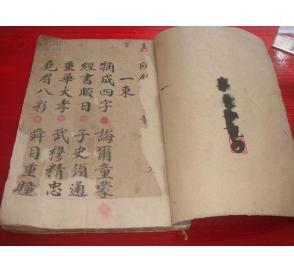 一東
觕成四字 誨爾童蒙
經書暇日 子史須通
重華大孝 武穆精忠
堯眉八彩 舜目重瞳